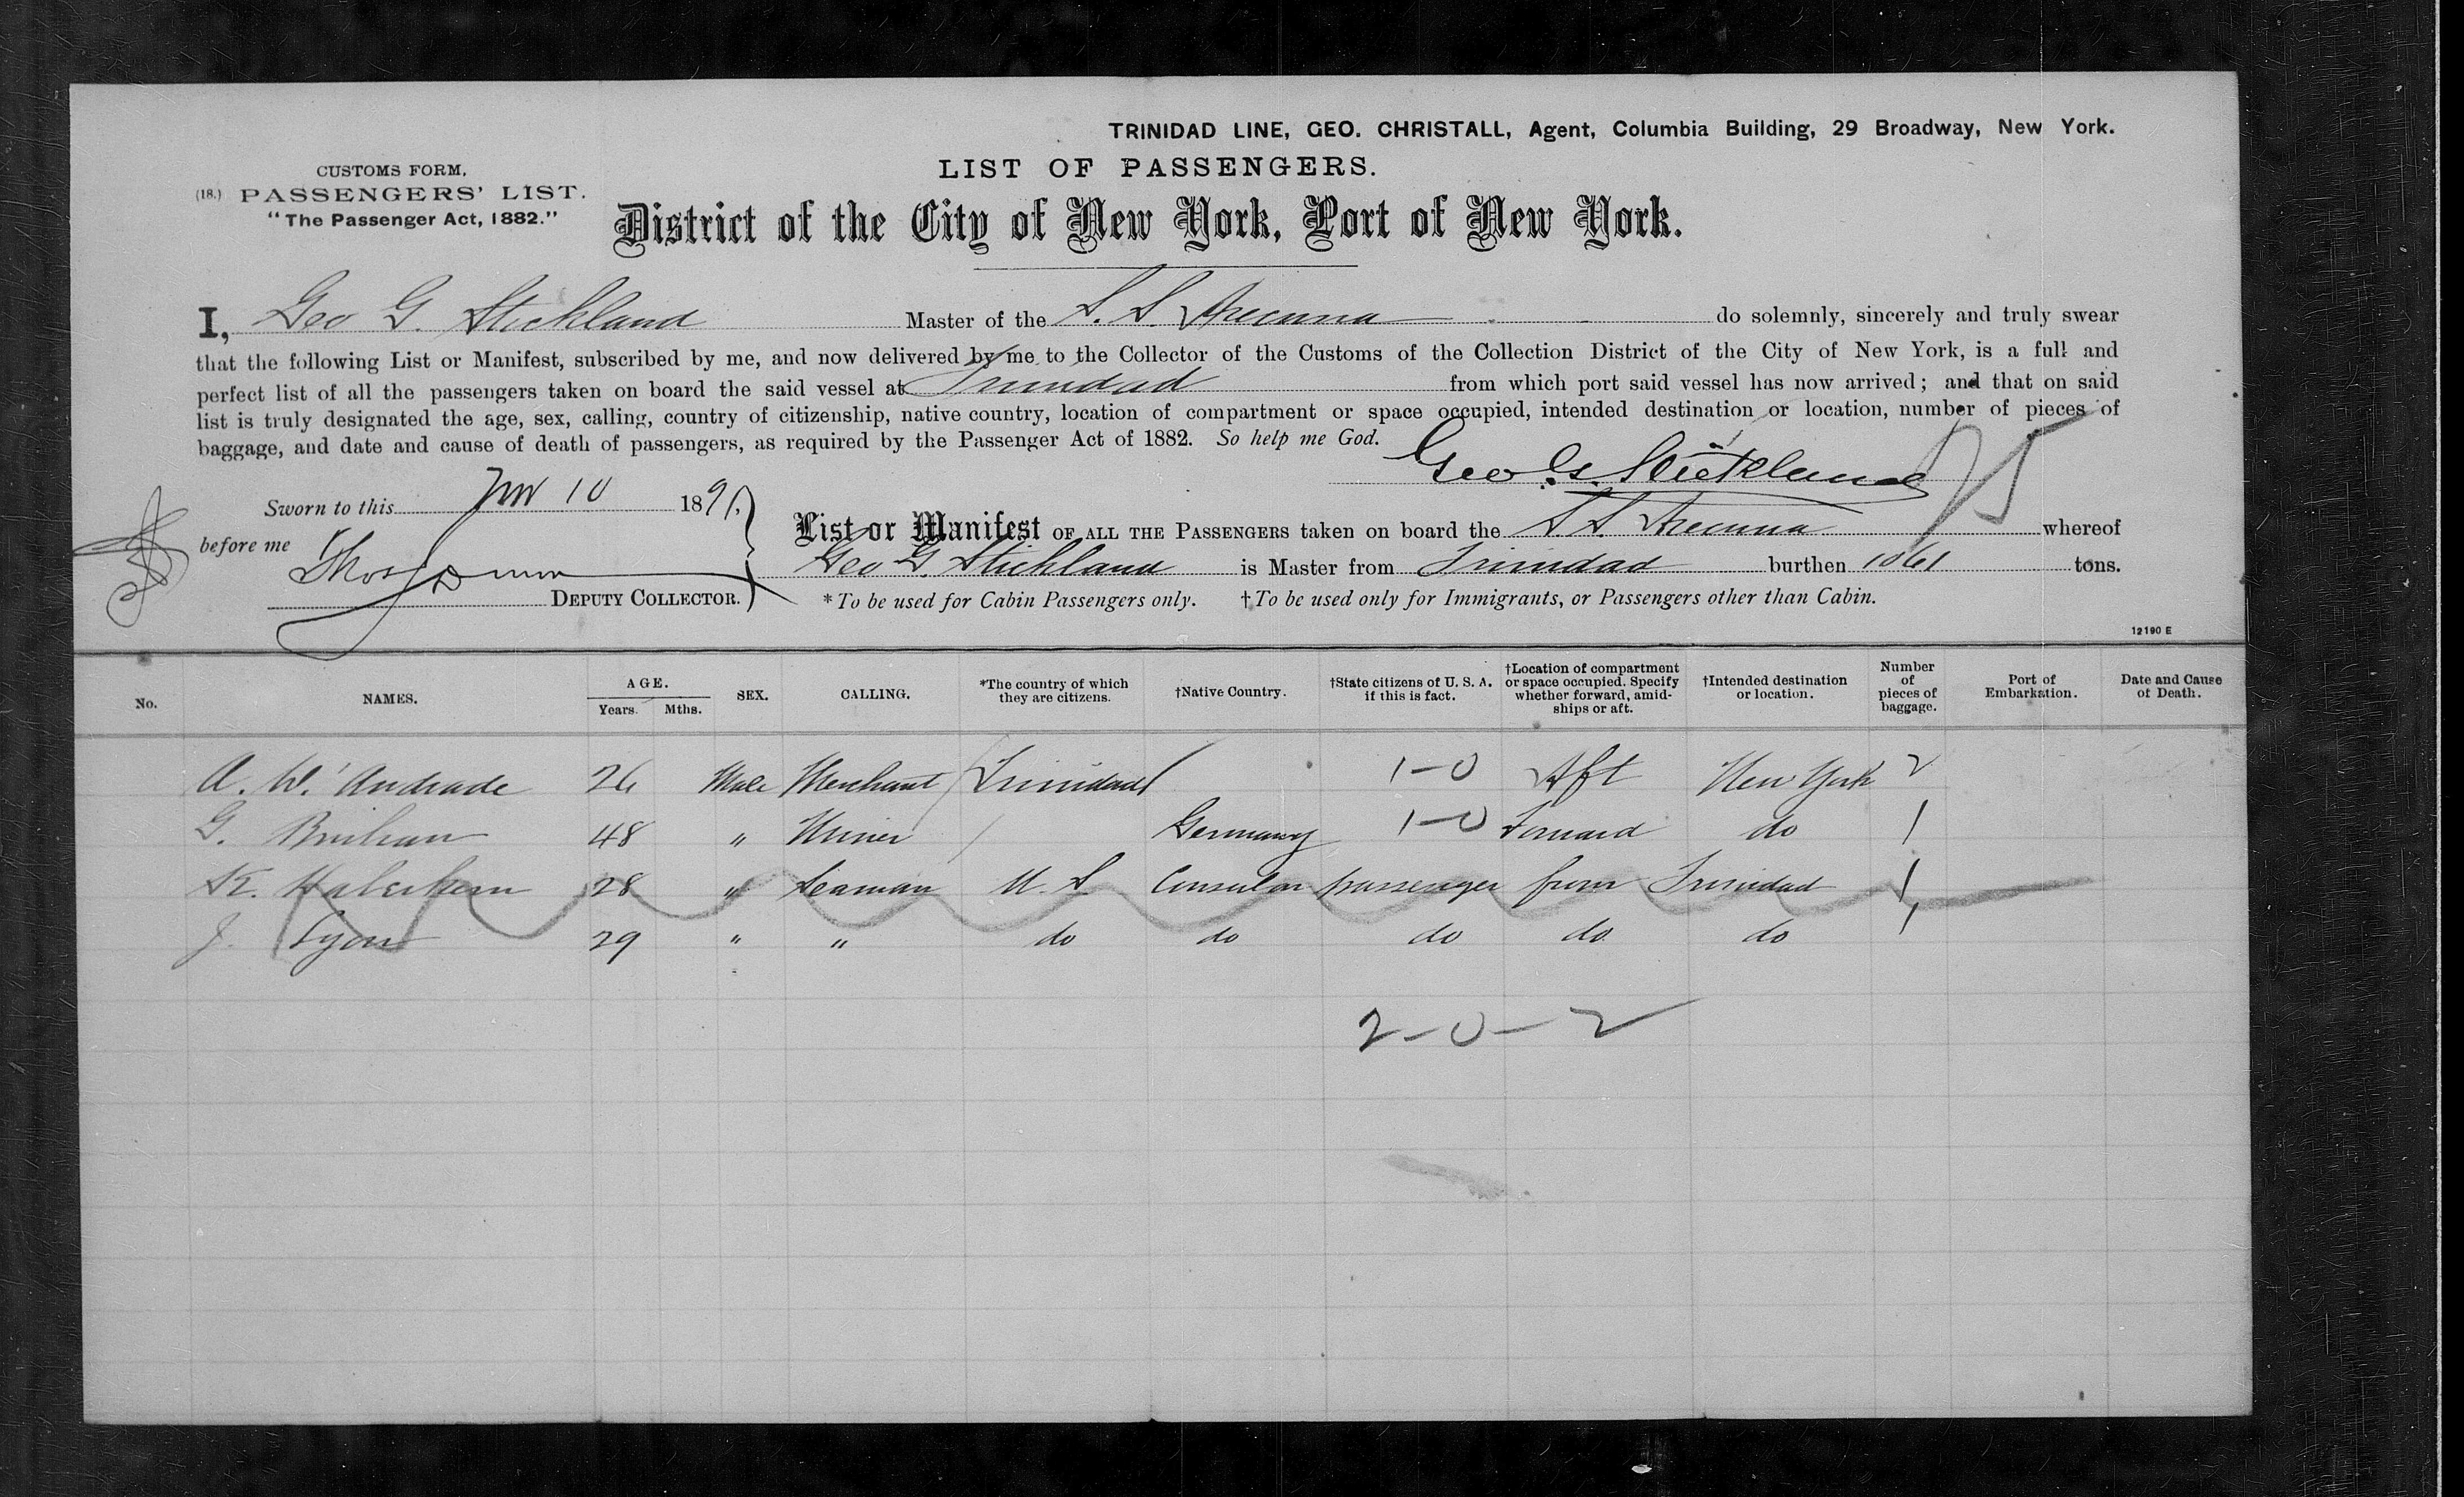 TRINIDAD LINE, GEO. CHRISTALL, Agent, Columbia Building, 29 Broadway, New York.
CUSTOMS FORM,
(18.) PASSENGERS' LIST.
"The Passenger Act, 1882."
LIST OF PASSENGERS.
District of the City of New York, Port of New York.
I, Geo G. Stickland Master of the S.S. Arecuna do solemnly, sincerely and truly swear
that the following List or Manifest, subscribed by me, and now delivered by me to the Collector of the Customs of the Collection District of the City of New York, is a full and
perfect list of all the passengers taken on board the said vessel at Trinidad from which port said vessel has now arrived; and that on said
list is truly designated the age, sex, calling, country of citizenship, native country, location of compartment or space occupied, intended destination or location, number of pieces of
baggage, and date and cause of death of passengers, as required by the Passenger Act of 1882. So help me God.
Geo. G. Stickland
Sworn to this 10 189
before me Thos
DEPUTY COLLECTOR.
List or Manifest OF ALL THE PASSENGERS taken on board the S.S. Arecuna whereof
Geo G. Stickland is Master from Trinidad burthen 1061 tons.
*To be used for Cabin Passengers only. †To be used only for Immigrants, or Passengers other than Cabin.
12190 E
No. NAMES. AGE. Years. Mths. SEX. CALLING. *The country of which they are citizens. †Native Country. †State citizens of U. S. A. if this is fact. †Location of compartment or space occupied. Specify whether forward, amidships or aft. †Intended destination or location. Number of pieces of baggage. Port of Embarkation. Date and Cause of Death.
A. W. Andrade 26 Male Merchant Trinidad 1-0 Aft New York 2
G. 48 " Miner Germany 1-0 Forward do 1
28 " Seaman U. S Consular passenger from Trinidad 1
J. Lyon 29 " " do do do do do 1
2-0-2